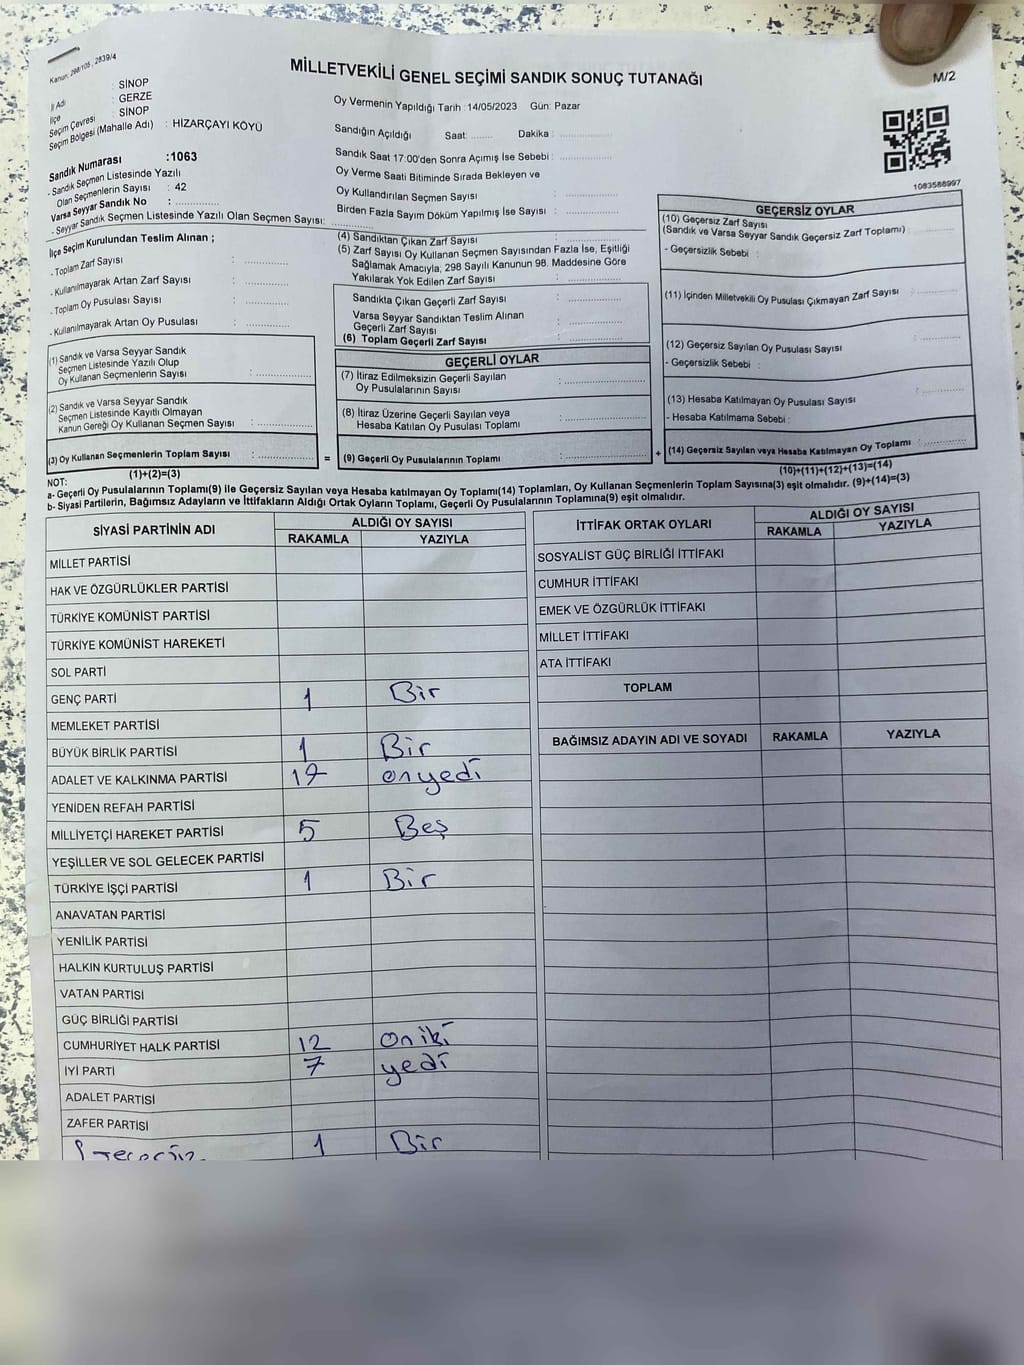 Kanun: 298/105, 2839/4
MİLLETVEKİLİ GENEL SEÇİMİ SANDIK SONUÇ TUTANAĞI
M/2
İl Adı : SİNOP
İlçe : GERZE
Seçim Çevresi : SİNOP
Seçim Bölgesi (Mahalle Adı) : HİZARÇAYI KÖYÜ
Sandık Numarası :1063
- Sandık Seçmen Listesinde Yazılı
Olan Seçmenlerin Sayısı : 42
Varsa Seyyar Sandık No : ............
- Seyyar Sandık Seçmen Listesinde Yazılı Olan Seçmen Sayısı: ............
Oy Vermenin Yapıldığı Tarih :14/05/2023 Gün: Pazar
Sandığın Açıldığı Saat: ........ Dakika : ............
Sandık Saat 17:00'den Sonra Açımış İse Sebebi : ............
Oy Verme Saati Bitiminde Sırada Bekleyen ve
Oy Kullandırılan Seçmen Sayısı : ............
Birden Fazla Sayım Döküm Yapılmış İse Sayısı : ............
1083588997
İlçe Seçim Kurulundan Teslim Alınan ;
- Toplam Zarf Sayısı : ............
- Kullanılmayarak Artan Zarf Sayısı : ............
- Toplam Oy Pusulası Sayısı : ............
- Kullanılmayarak Artan Oy Pusulası : ............
(1) Sandık ve Varsa Seyyar Sandık
Seçmen Listesinde Yazılı Olup
Oy Kullanan Seçmenlerin Sayısı : ............
(2) Sandık ve Varsa Seyyar Sandık
Seçmen Listesinde Kayıtlı Olmayan
Kanun Gereği Oy Kullanan Seçmen Sayısı : ............
(3) Oy Kullanan Seçmenlerin Toplam Sayısı : ............
(1)+(2)=(3)
(4) Sandıktan Çıkan Zarf Sayısı : ............
(5) Zarf Sayısı Oy Kullanan Seçmen Sayısından Fazla İse, Eşitliği
Sağlamak Amacıyla; 298 Sayılı Kanunun 98. Maddesine Göre
Yakılarak Yok Edilen Zarf Sayısı : ............
Sandıkta Çıkan Geçerli Zarf Sayısı : ............
Varsa Seyyar Sandıktan Teslim Alınan
Geçerli Zarf Sayısı : ............
(6) Toplam Geçerli Zarf Sayısı : ............
GEÇERLİ OYLAR
(7) İtiraz Edilmeksizin Geçerli Sayılan
Oy Pusulalarının Sayısı : ............
(8) İtiraz Üzerine Geçerli Sayılan veya
Hesaba Katılan Oy Pusulası Toplamı : ............
= (9) Geçerli Oy Pusulalarının Toplamı : ............ +
GEÇERSİZ OYLAR
(10) Geçersiz Zarf Sayısı
(Sandık ve Varsa Seyyar Sandık Geçersiz Zarf Toplamı) : ............
- Geçersizlik Sebebi :
(11) İçinden Milletvekili Oy Pusulası Çıkmayan Zarf Sayısı : ............
(12) Geçersiz Sayılan Oy Pusulası Sayısı : ............
- Geçersizlik Sebebi :
(13) Hesaba Katılmayan Oy Pusulası Sayısı : ............
- Hesaba Katılmama Sebebi :
(14) Geçersiz Sayılan veya Hesaba Katılmayan Oy Toplamı : ............
(10)+(11)+(12)+(13)=(14)
NOT:
a- Geçerli Oy Pusulalarının Toplamı(9) ile Geçersiz Sayılan veya Hesaba katılmayan Oy Toplamı(14) Toplamları, Oy Kullanan Seçmenlerin Toplam Sayısına(3) eşit olmalıdır. (9)+(14)=(3)
b- Siyasi Partilerin, Bağımsız Adayların ve İttifakların Aldığı Ortak Oyların Toplamı, Geçerli Oy Pusulalarının Toplamına(9) eşit olmalıdır.
SİYASİ PARTİNİN ADI ALDIĞI OY SAYISI
RAKAMLA YAZIYLA
MİLLET PARTİSİ
HAK VE ÖZGÜRLÜKLER PARTİSİ
TÜRKİYE KOMÜNİST PARTİSİ
TÜRKİYE KOMÜNİST HAREKETİ
SOL PARTİ
GENÇ PARTİ 1 Bir
MEMLEKET PARTİSİ
BÜYÜK BİRLİK PARTİSİ 1 Bir
ADALET VE KALKINMA PARTİSİ 17 onyedi
YENİDEN REFAH PARTİSİ
MİLLİYETÇİ HAREKET PARTİSİ 5 Beş
YEŞİLLER VE SOL GELECEK PARTİSİ
TÜRKİYE İŞÇİ PARTİSİ 1 Bir
ANAVATAN PARTİSİ
YENİLİK PARTİSİ
HALKIN KURTULUŞ PARTİSİ
VATAN PARTİSİ
GÜÇ BİRLİĞİ PARTİSİ
CUMHURİYET HALK PARTİSİ 12 on iki
İYİ PARTİ 7 yedi
ADALET PARTİSİ
ZAFER PARTİSİ
Geçersiz 1 Bir
İTTİFAK ORTAK OYLARI ALDIĞI OY SAYISI
RAKAMLA YAZIYLA
SOSYALİST GÜÇ BİRLİĞİ İTTİFAKI
CUMHUR İTTİFAKI
EMEK VE ÖZGÜRLÜK İTTİFAKI
MİLLET İTTİFAKI
ATA İTTİFAKI
TOPLAM
BAĞIMSIZ ADAYIN ADI VE SOYADI RAKAMLA YAZIYLA